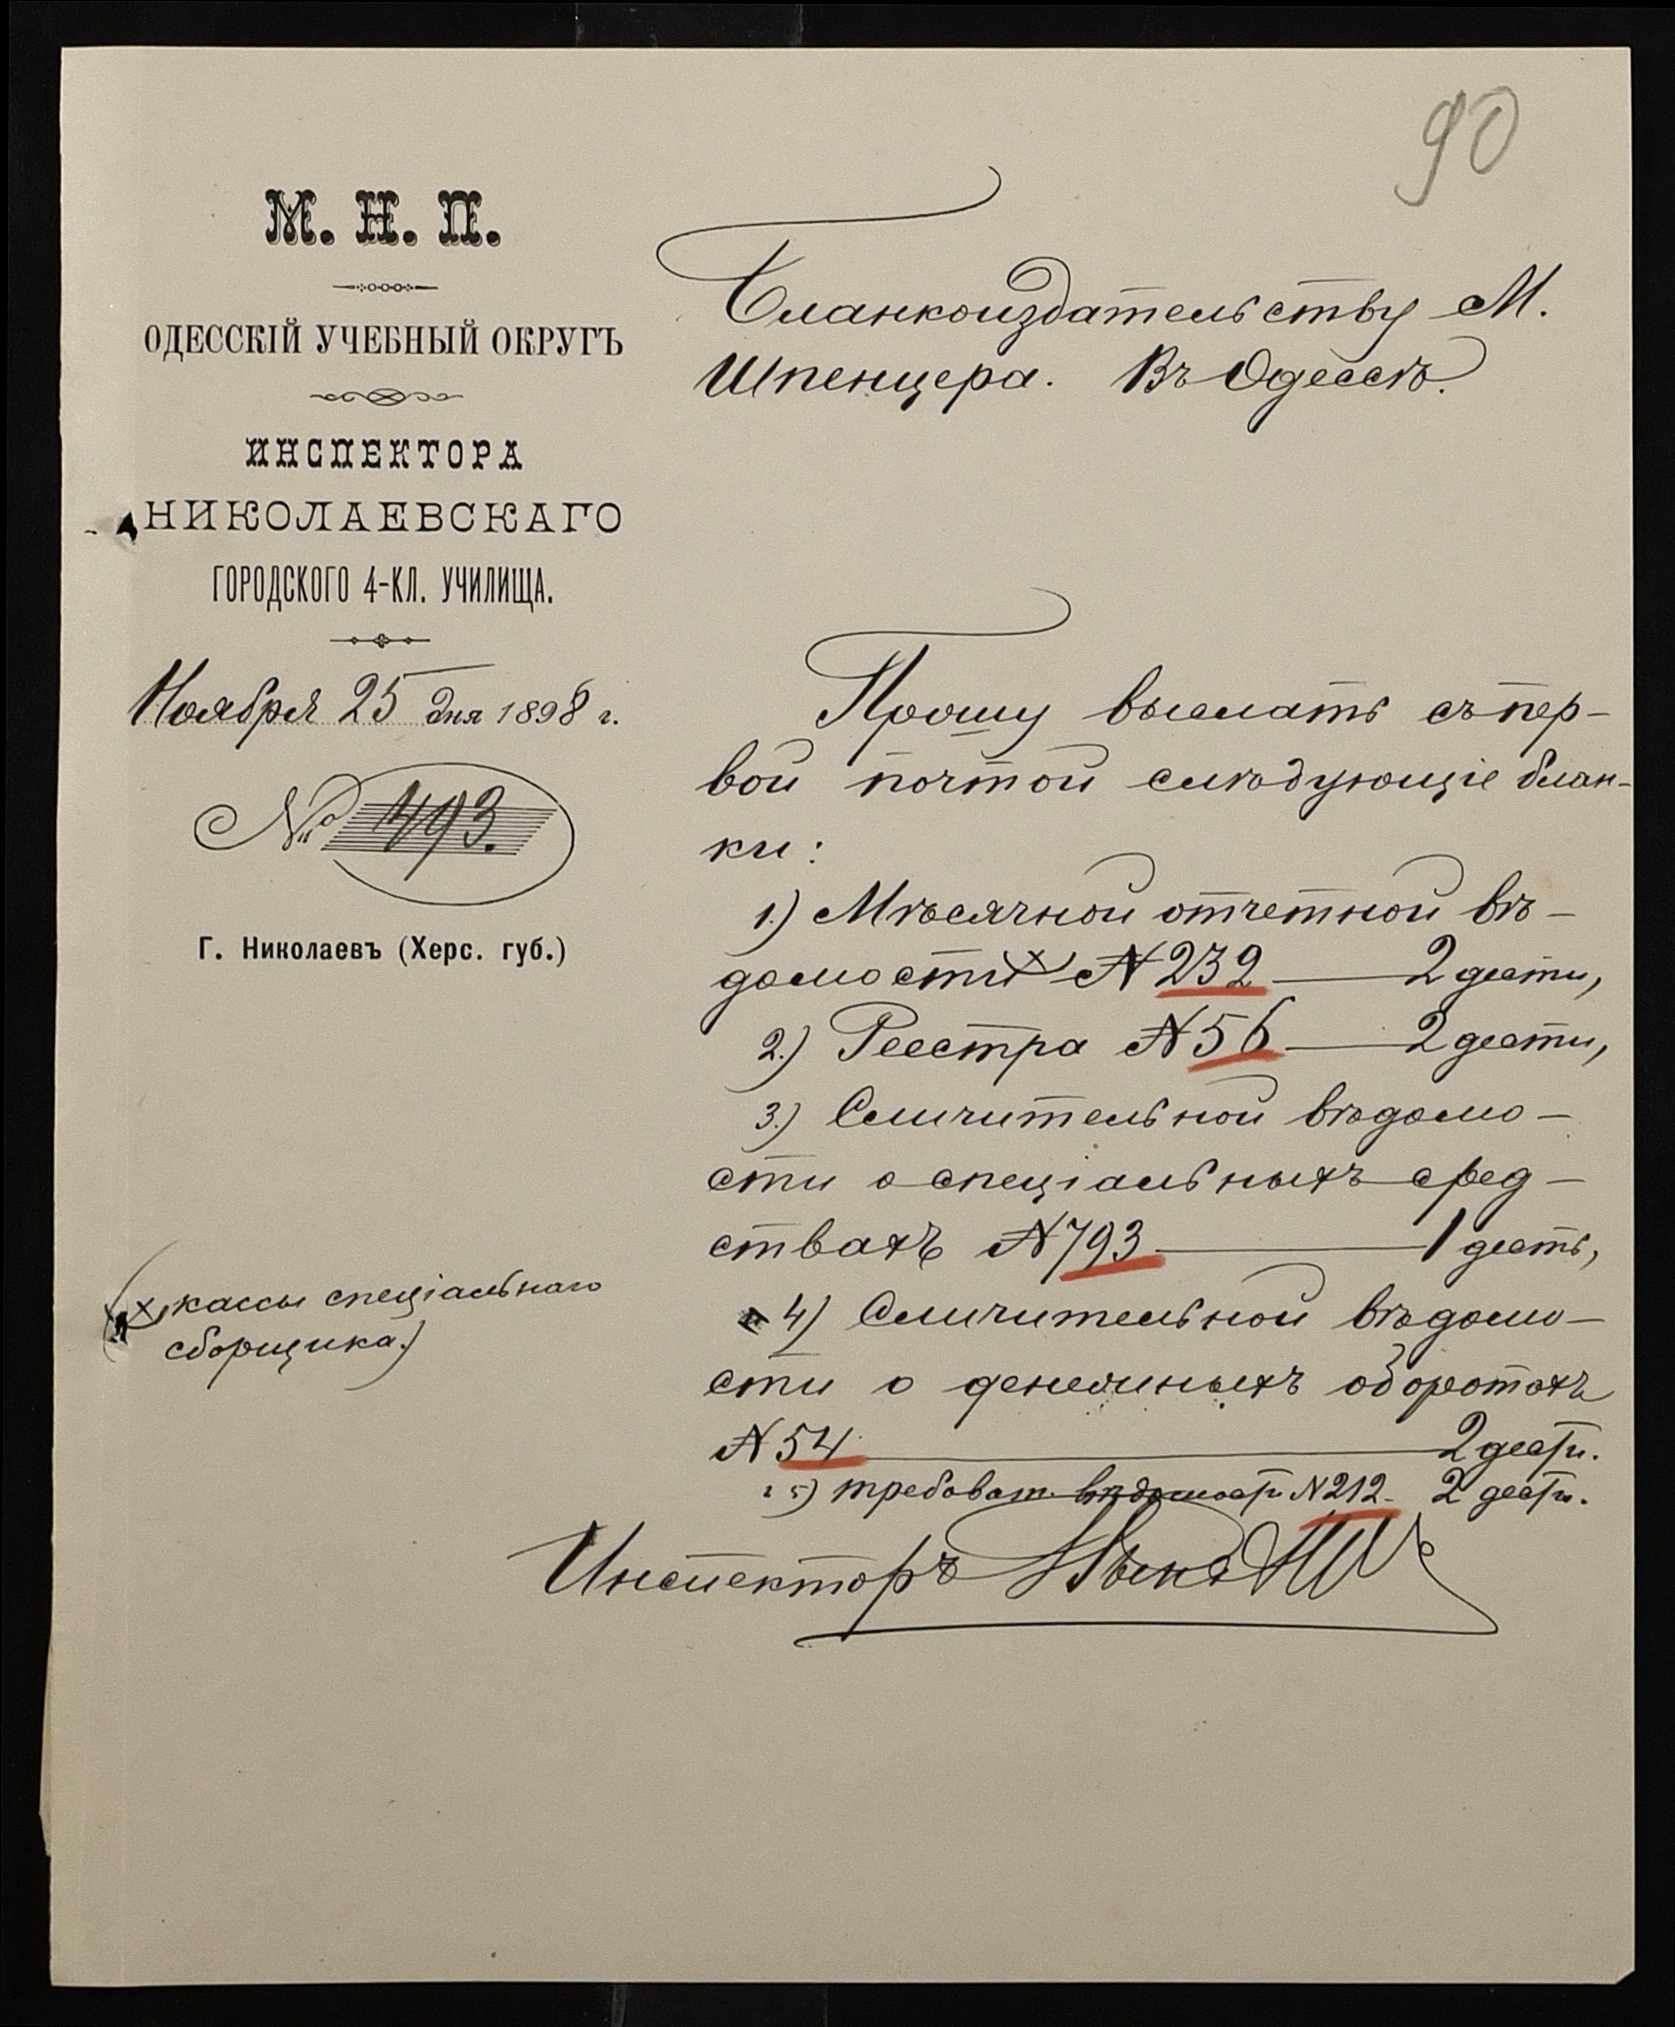 90
М. Н. П.
ОДЕССКІЙ УЧЕБНЫЙ ОКРУГЪ
ИНСПЕКТОРА
НИКОЛАЕВСКАГО
ГОРОДСКОГО 4-КЛ. УЧИЛИЩА.
Ноября 25 дня 1898 г.
№ 493.
Г. Николаевъ (Херс. губ.)
Бланкоиздательству М.
Шпенцера. Въ Одессѣ.
Прошу выслать съ пер-
вой почтой слѣдующіе блан-
ки:
1.) Мѣсячной отчетной вѣ-
домости × № 232 — 2 дести,
2.) Реестра № 56 — 2 дести,
3.) Сличительной вѣдомо-
сти о спеціальныхъ сред-
ствахъ № 793 — 1 десть,
4) Сличительной вѣдомо-
сти о денежныхъ оборотахъ
№ 54 — 2 дести.
и 5) требоват. вѣдомости № 212 - 2 дести.
Инспекторъ
(× кассы спеціальнаго
сборщика.)